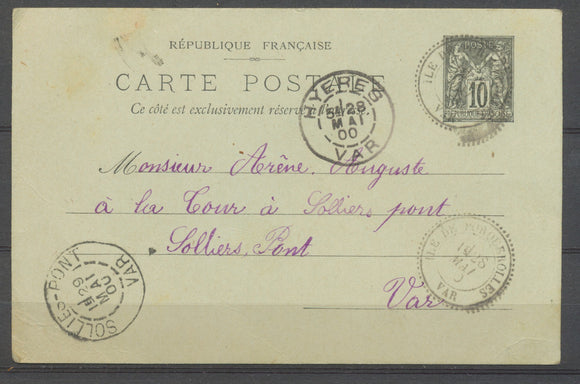 RÉPUBLIQUE FRANÇAISE
CARTE POSTALE
Ce côté est exclusivement réservé à
POSTES
10
ILE
VAR
HYERES
28
MAI
00
VAR
Monsieur Arène, Auguste
à la Cour à Solliers pont
Solliers, Pont
Var
ILE DE PORQUEROLLES
MAI
VAR
SOLLIES-PONT
VAR
29
MAI
00